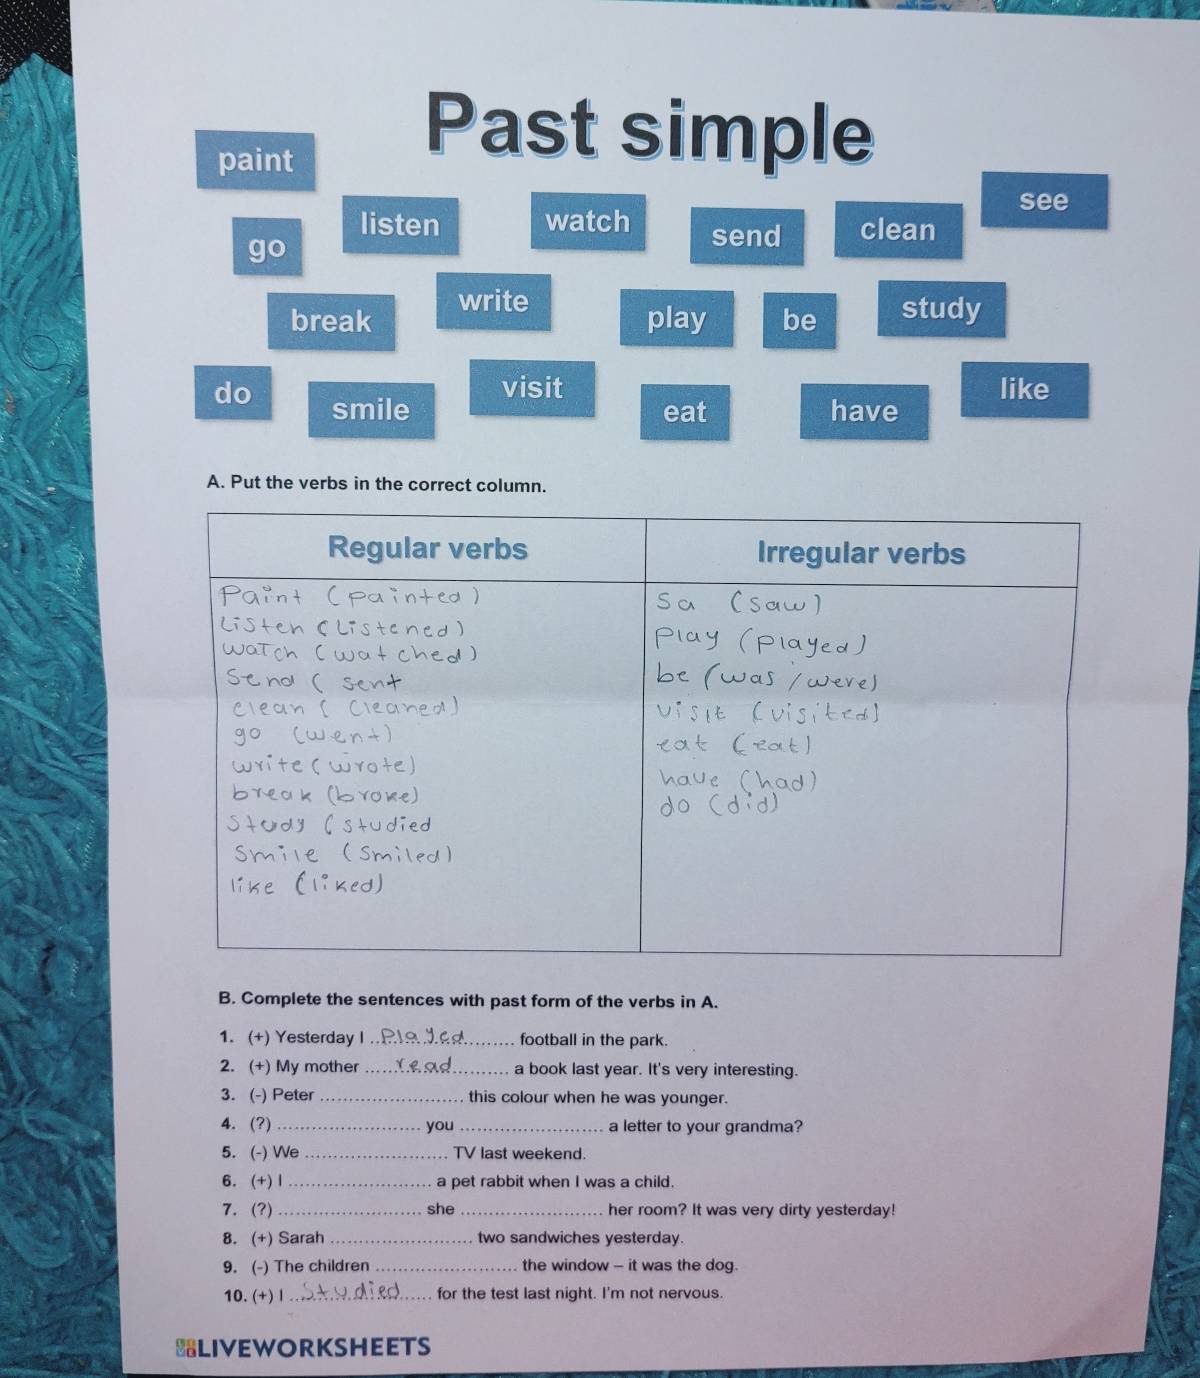 Past simple
paint
see
listen
watch
send
clean
go
write
break
play
be
study
do
smile
visit
eat
have
like
A. Put the verbs in the correct column.
Regular verbs
Irregular verbs
Paint (painted)
Listen (Listened)
watch (watched)
Send ( sent
clean ( cleaned)
go (went)
write (wrote)
break (broke)
Study (studied
Smile (Smiled)
like (liked)
sa (saw)
Play (Played)
be (was / were)
visit (visited)
eat (eat)
have (had)
do (did)
B. Complete the sentences with past form of the verbs in A.
1. (+) Yesterday I ..Played.......... football in the park.
2. (+) My mother .....read.......... a book last year. It's very interesting.
3. (-) Peter ........................ this colour when he was younger.
4. (?) ........................ you ........................ a letter to your grandma?
5. (-) We ........................ TV last weekend.
6. (+) I ........................ a pet rabbit when I was a child.
7. (?) ........................ she ........................ her room? It was very dirty yesterday!
8. (+) Sarah ........................ two sandwiches yesterday.
9. (-) The children ........................ the window – it was the dog.
10. (+) I ..Studied...... for the test last night. I'm not nervous.
LIVEWORKSHEETS